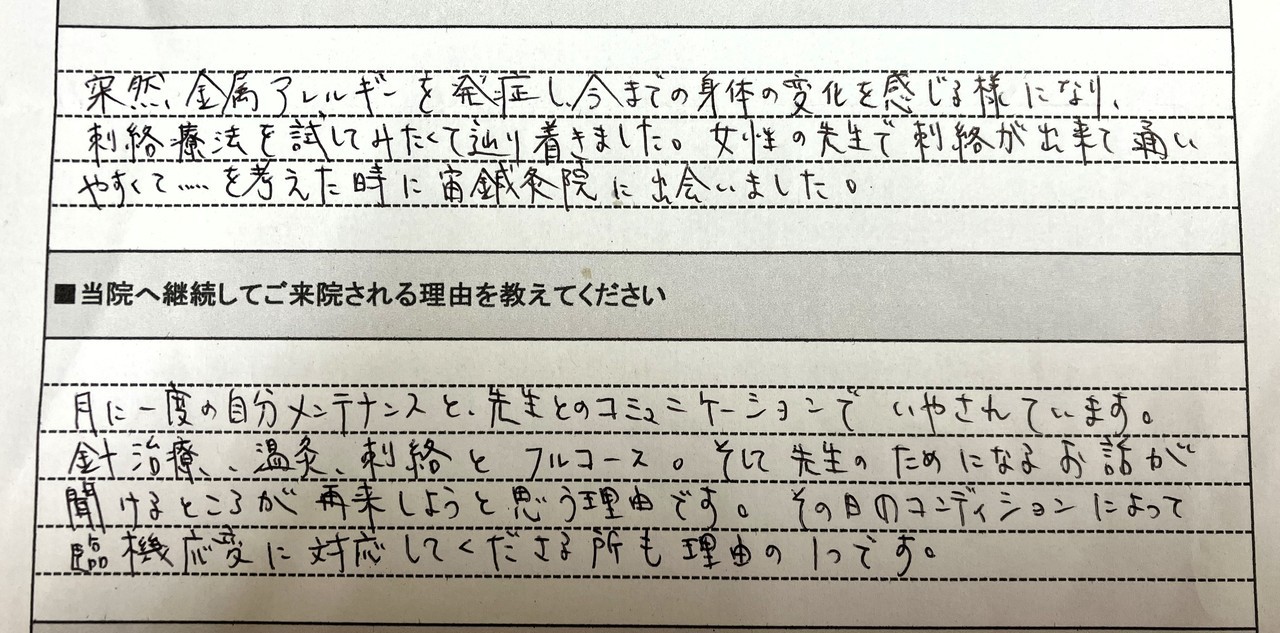 突然、金属アレルギーを発症し、今までの身体の変化を感じる様になり、
刺絡療法を試してみたくて辿り着きました。女性の先生で刺絡が出来て通い
やすくて……を考えた時に宙鍼灸院に出会いました。
■当院へ継続してご来院される理由を教えてください
月に一度の自分メンテナンスと、先生とのコミュニケーションでいやされています。
針治療、、温灸、刺絡とフルコース。そして先生のためになるお話が
聞けるところが再来しようと思う理由です。その日のコンディションによって
臨機応変に対応してくださる所も理由の1つです。